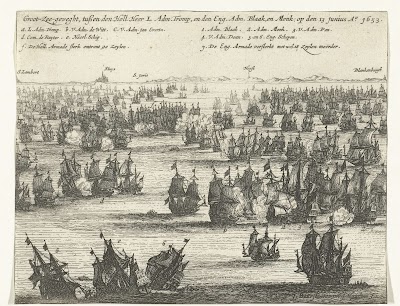 Groot Zee-gevegt, tussen den Holl. Heer L. Adm. Tromp, en den Eng. Adm. Blaak, en Monk: op den 13 junius Aº 1653.
a. L. Adm. Tromp. b. V. Adm. de Wit. c. V. Adm. Jan Evertz.
d. Com. de Ruyter. e. Noorl. Schip.
f. De Holl. Armade sterk omtrent 90 Zeylen.
1. Adm. Blaak. 2. Adm. Monk. 3. V. Adm. Pen.
4. V. Adm. 5. en 6. Enge Schepen.
7. De Eng. Armada versterkt met wel 18 Zeylen meerder.
S. Lambert
Sluys
S. joris
Heyst
Blankenbergh